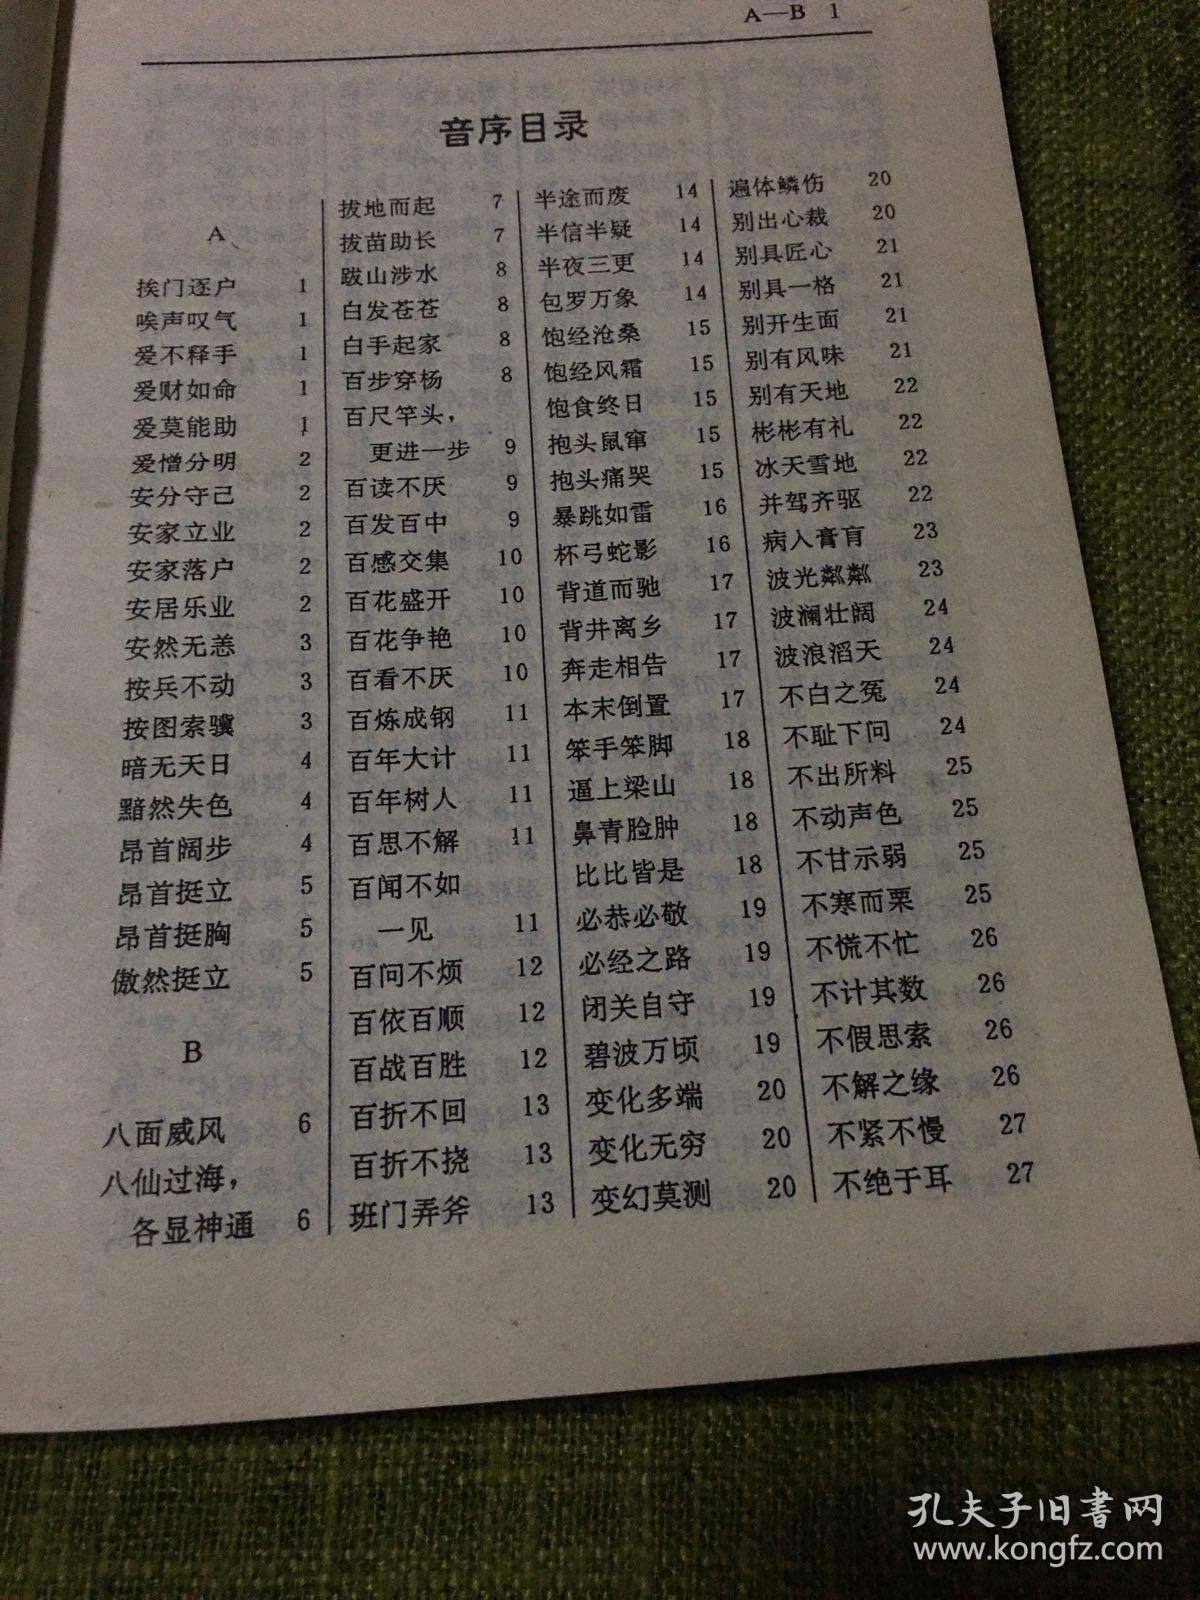 A—B 1
音序目录
A
挨门逐户 1
唉声叹气 1
爱不释手 1
爱财如命 1
爱莫能助 1
爱憎分明 2
安分守己 2
安家立业 2
安家落户 2
安居乐业 2
安然无恙 3
按兵不动 3
按图索骥 3
暗无天日 4
黯然失色 4
昂首阔步 4
昂首挺立 5
昂首挺胸 5
傲然挺立 5
B
八面威风 6
八仙过海，
各显神通 6
拔地而起 7
拔苗助长 7
跋山涉水 8
白发苍苍 8
白手起家 8
百步穿杨 8
百尺竿头，
更进一步 9
百读不厌 9
百发百中 9
百感交集 10
百花盛开 10
百花争艳 10
百看不厌 10
百炼成钢 11
百年大计 11
百年树人 11
百思不解 11
百闻不如
一见 11
百问不烦 12
百依百顺 12
百战百胜 12
百折不回 13
百折不挠 13
班门弄斧 13
半途而废 14
半信半疑 14
半夜三更 14
包罗万象 14
饱经沧桑 15
饱经风霜 15
饱食终日 15
抱头鼠窜 15
抱头痛哭 15
暴跳如雷 16
杯弓蛇影 16
背道而驰 17
背井离乡 17
奔走相告 17
本末倒置 17
笨手笨脚 18
逼上梁山 18
鼻青脸肿 18
比比皆是 18
必恭必敬 19
必经之路 19
闭关自守 19
碧波万顷 19
变化多端 20
变化无穷 20
变幻莫测 20
遍体鳞伤 20
别出心裁 20
别具匠心 21
别具一格 21
别开生面 21
别有风味 21
别有天地 22
彬彬有礼 22
冰天雪地 22
并驾齐驱 22
病入膏肓 23
波光粼粼 23
波澜壮阔 24
波浪滔天 24
不白之冤 24
不耻下问 24
不出所料 25
不动声色 25
不甘示弱 25
不寒而栗 25
不慌不忙 26
不计其数 26
不假思索 26
不解之缘 26
不紧不慢 27
不绝于耳 27
孔夫子旧书网
www.kongfz.com